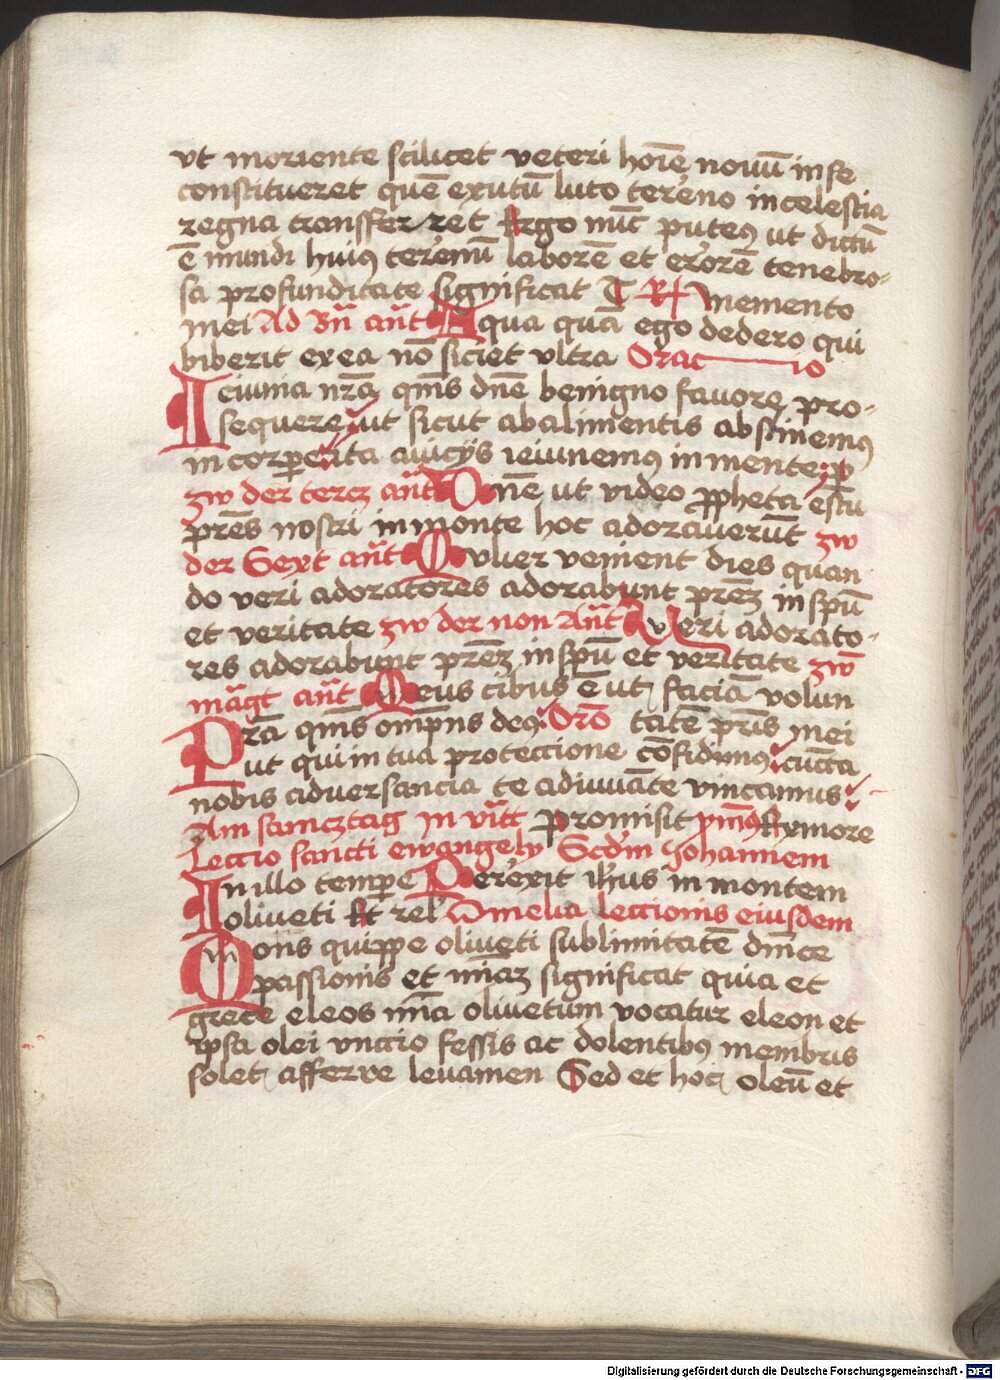 vt moriente scilicet veteri hoīe nouū in se
constitueret quē exutū luto terēno in celestia
regna transffer ret Ergo nūc puteꝯ ut dictū
ē mundi huiꝯ terēnū laborē et erōrē tenebro-
sa profunditate significat R Memento
mei Ad Bn̄ an̄t Aqua quā ego dedero qui
biberit ex ea nō siciet vltra Orac io
Ieiunia nr̄a qm̄s dn̄e benigno fauore pro-
sequere ut sicut ab alimentis abstinemꝯ
in corpere ita a uicijs ieiunemꝯ in mente p̄
zw der tercz an̄t Dn̄e ut video ꝓpheta es tu
pres̄ nostri in monte hoc adorauerūt zw
der Sext an̄t Mulier venient dies quan
do veri adoratores adorabunt prēꝫ in spū
et veritate zw der non An̄t Veri adorato-
res adorabunt prēꝫ in spū et veritate zw̄
mag̅t an̄t Meus cibus ē ut faciā volun
Pr̄a qm̄s omp̄ns deꝯ Orō tatē pr̄is mei
ut qui in tua protectione cōfidimꝯ cūcta
nobis aduersancia te adiuuāte vincamus
Am samcztag In vītt promisit ym̄ꝯ Rymore
Leccio sancti ewangely Scdm̄ Johannem
In illo tempe Perēxit ih̄us in montem
oliueti Et rel̄ Omelia leccionis eiusdem
Mons quippe oliueti sublimitatē dm̄ce
passionis et mīaꝫ significat quia et
grece eleos mīa oliuetum vocatur eleon et
ipsa olei vnctio fessis ac dolentibꝯ membris
solet afferre leuamen Sed et hoc oleū et
Digitalisierung gefördert durch die Deutsche Forschungsgemeinschaft - DFG